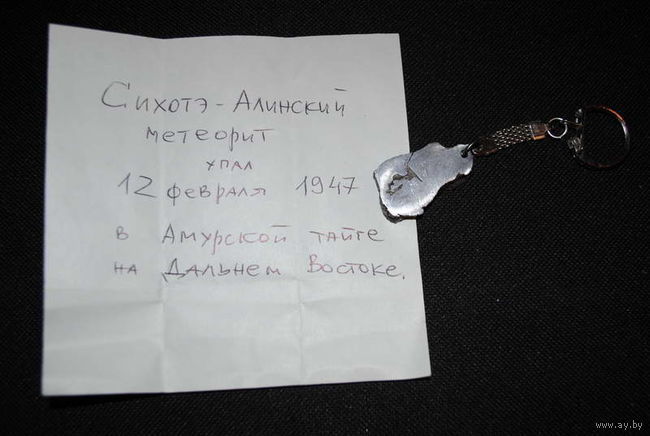 Сихотэ-Алинский
метеорит
упал
12 февраля 1947
в Амурской тайге
на Дальнем Востоке.
www.ay.by